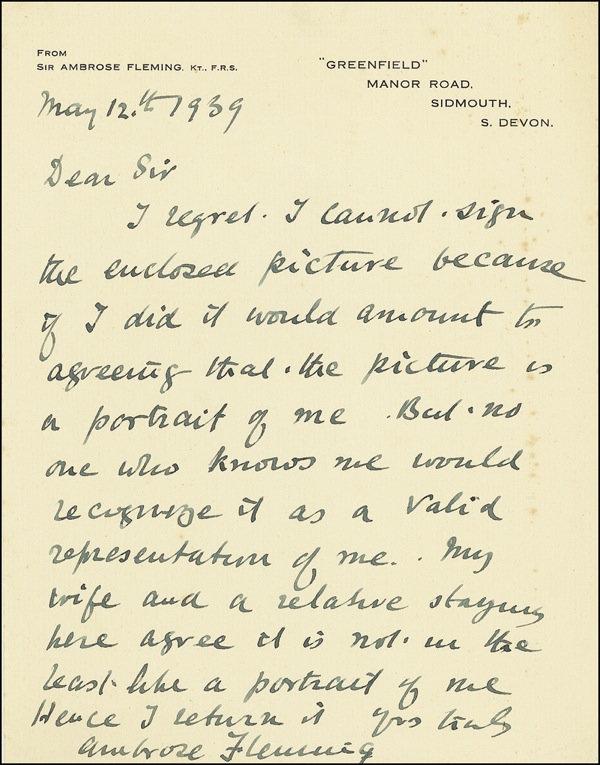 FROM
SIR AMBROSE FLEMING. KT., F.R.S.
"GREENFIELD"
MANOR ROAD,
SIDMOUTH,
S. DEVON.
May 12.th 1939
Dear Sir
I regret. I cannot. sign
the enclosed picture because
if I did it would amount to
agreeing that. the picture is
a portrait of me. But. no
one who knows me would
recognize it as a valid
representation of me. . My
wife and a relative staying
here agree it is not. in the
least. like a portrait of me
Hence I return it yrs truly
Ambrose Fleming